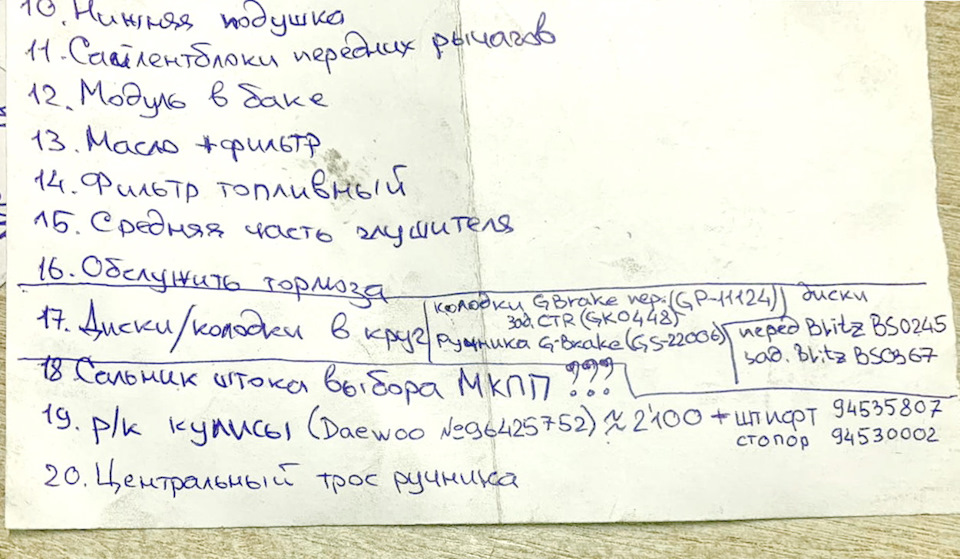 10. Нижняя подушка
11. Сайлентблоки передних рычагов
12. Модуль в баке
13. Масло + фильтр
14. Фильтр топливный
15. Средняя часть глушителя
16. Обслужить тормоза
17. Диски/колодки в круг
колодки GBrake пер. (GP-11124)
зад. CTR (GK0448)
Ручника G-Brake (GS-22006)
диски
перед Blitz BS0245
зад. Blitz BS0367
18 Сальник штока выбора МКПП ???
19. р/к кулисы (Daewoo №96425752) ≈ 2'100 + штифт 94535807
стопор 94530002
20. Центральный трос ручника